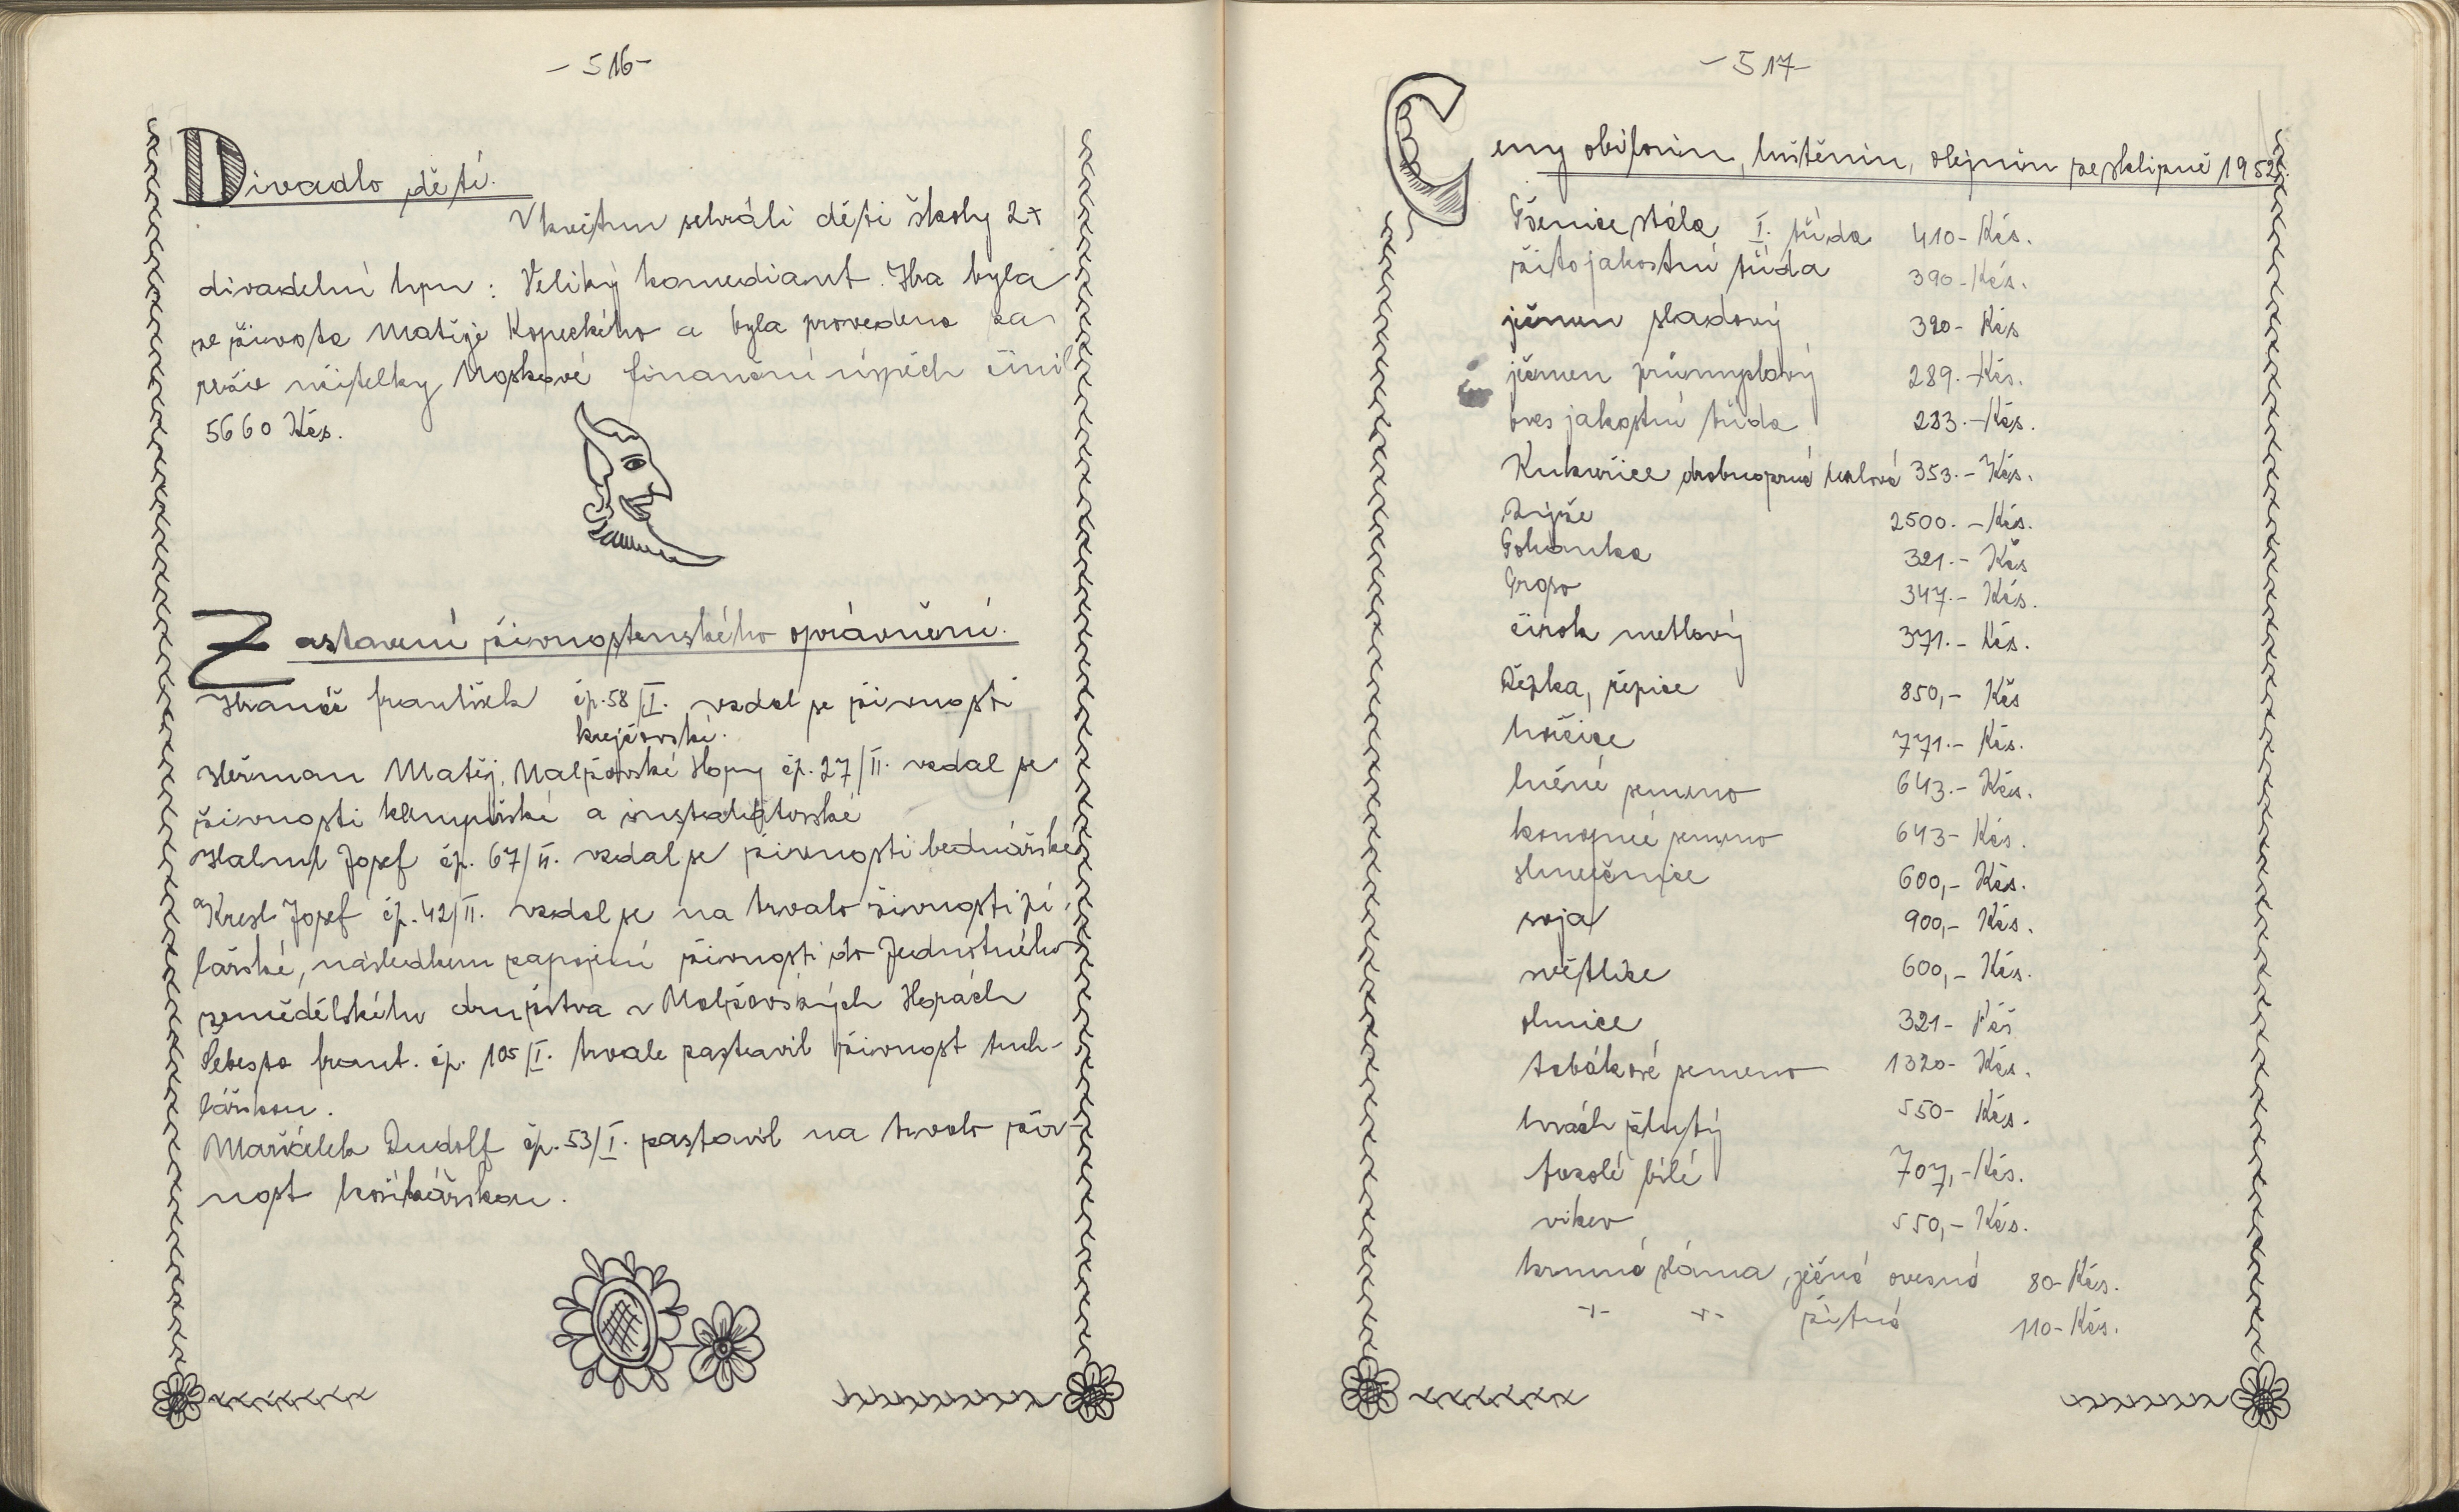 - 516 -
Divadlo dětí.
V květnu sehráli děti školy 2x
divadelní hru: Veliký komediant. Hra byla
ze života Matěje Kopeckého a byla provedena za
režie učitelky Noskové finanční úspěch činil
5660 Kčs.
Zastavení živnostenského oprávnění.
František čp. 58/II. vzdal se živnosti
krejčovské.
Heřman Matěj, Malžovské Hory čp. 27/II. vzdal se
živnosti klempířské a instalatorské
Josef čp. 67/II. vzdal se živnosti bednářské
a Kresl Josef čp. 42/II. vzdal se na trvalo živnosti pi-
lařské, následkem zapojení živnosti do Jednotného
zemědělského družstva v Horách
Šebesta Frant. čp. 105/I. trvale zastavil živnost truh-
lářskou.
Mařádek Rudolf čp. 53/I. zastavil na trvalo živ-
nost košíkářskou.
- 517 -
Ceny obilovin, luštěnin, olejnin ze sklizně 1952.
Pšenice stálá I. třída 410- Kčs.
žito jakostní třída 390- Kčs.
ječmen sladový 390- Kčs
ječmen průmyslový 289.- Kčs.
oves jakostní třída 283.- Kčs.
Kukuřice drobnozrná 353.- Kčs.
Rýže 2500.- Kčs.
Pohanka 321.- Kčs
Proso 347.- Kčs.
čirok metlový 371.- Kčs.
Řepka, řepice 850,- Kčs
hořčice 771.- Kčs.
lněné semeno 643.- Kčs.
konopné semeno 643- Kčs.
slunečnice 600,- Kčs.
soja 900,- Kčs.
světlice 600,- Kčs.
olnice 321- Kčs
tabákové semeno 1320- Kčs.
hrách žlutý 550- Kčs.
fazolé bílé 707,- Kčs.
vikev 550,- Kčs.
krmná sláma, ječná ovesná 80- Kčs.
-"- -"- žitná 110- Kčs.